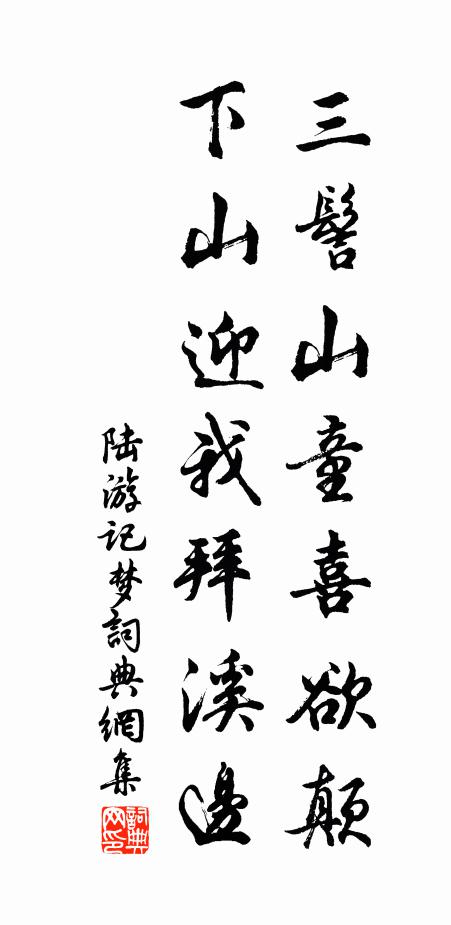 三髻山童喜欲颠
下山迎我拜溪邊
陆游记梦詞典網集
詞典网印